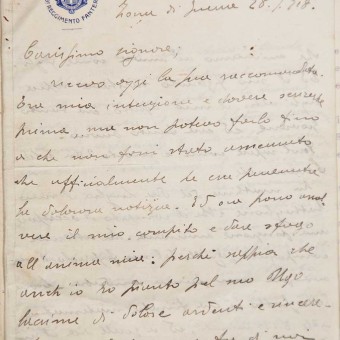 REGGIMENTO FANTERIA
Zona di guerra 28. 918.
Carissimo signore;
ricevo oggi la sua raccomandata.
Era mia intenzione e dovere scriverle
prima ma non potevo farlo fino
a che non fossi stato assicurato
che ufficialmente le era pervenuta
la dolorosa notizia. Ed ora posso assol
vere il mio compito e dare sfogo
all'anima mia: perchè sappia che
anch'io ho pianto pel mo Ugo
lacrime di dolore ardenti e sincere